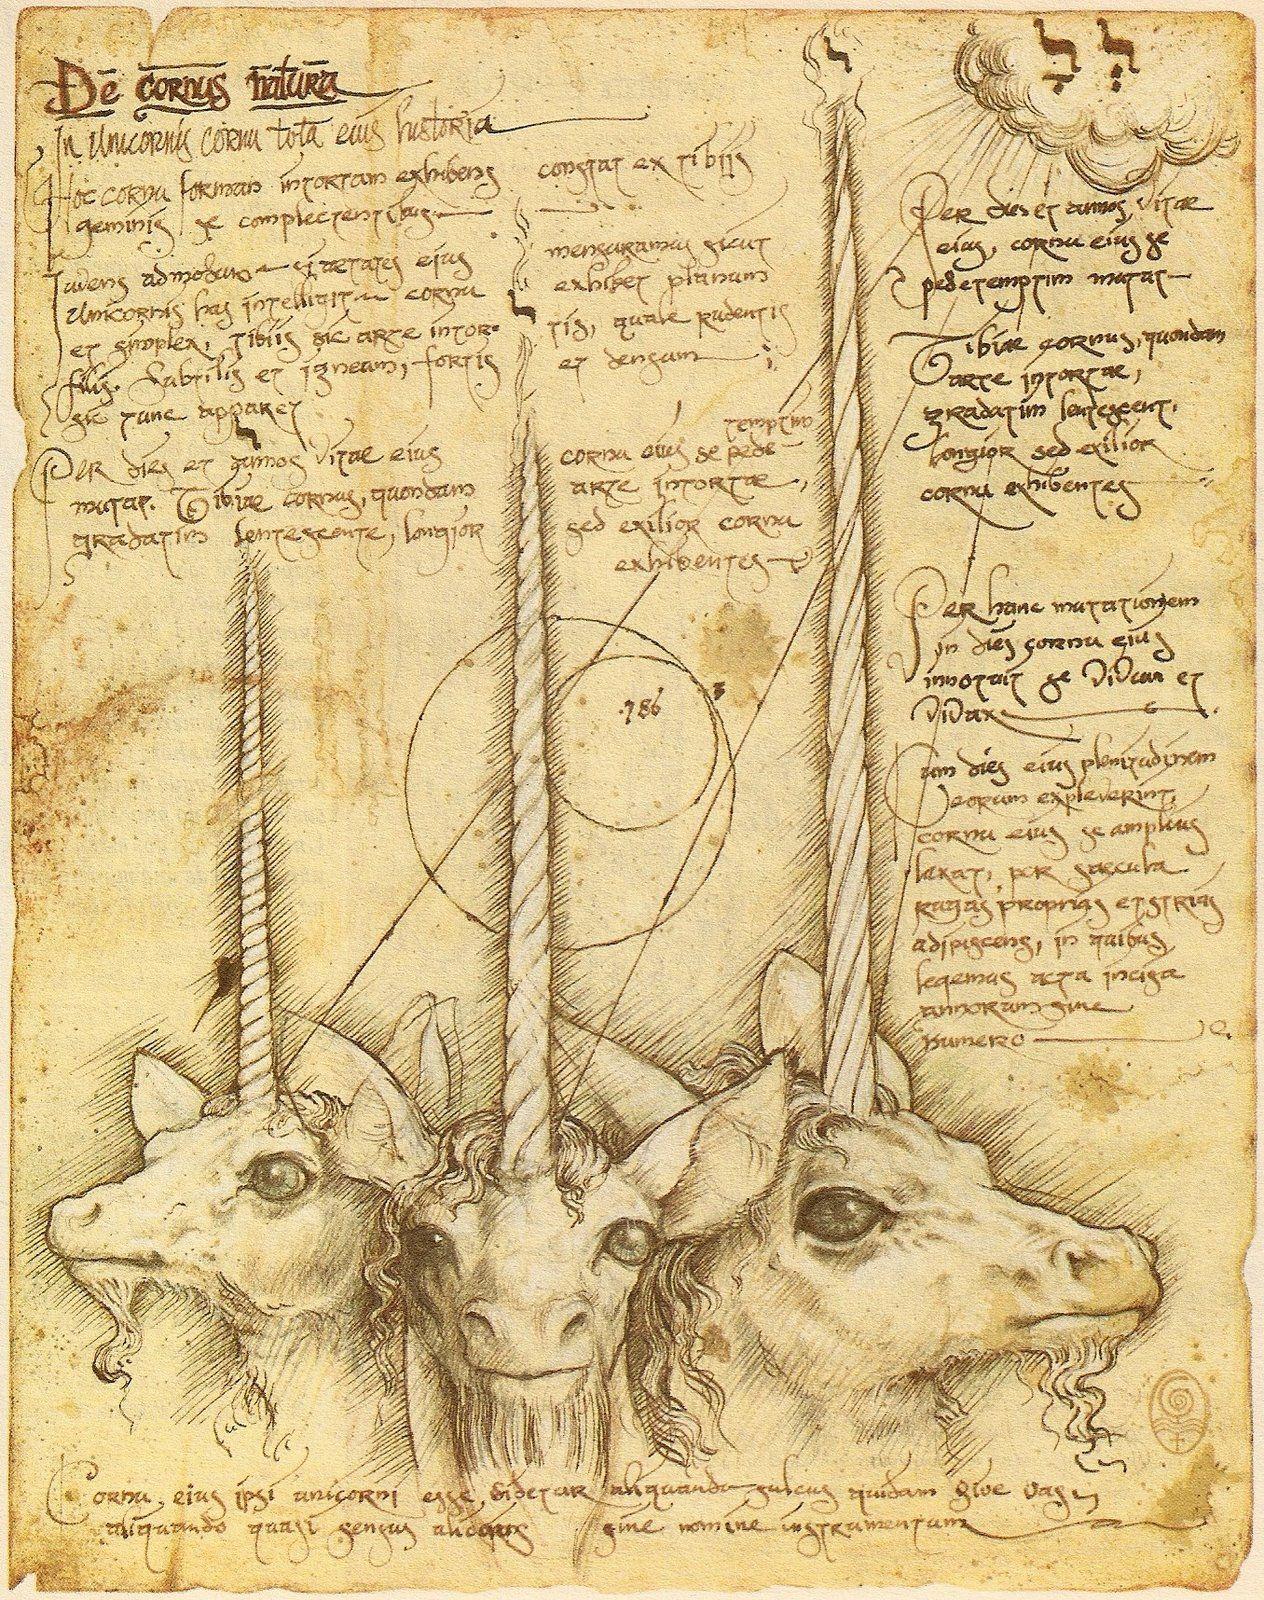 De cornus natura
In Unicornis cornu tota eius historia
Hoc cornu forman intortam exhibens constat ex tibiis
geminis se complectentibus
Juvenis admodum si aetates eius
Unicornis has intelligit cornu
et simplex, tibiis sic arte intor-
filis. Subtilis et igneam, fortis
sic tunc apparet
mensuramus sicut
exhibet planum
tis, quale rudentis
et densum
Per dies et annos Vitae eius
mutat. Tibiae cornus, quondam
gradatim lentescente, longior
temptim
cornu eius se pede
arte intortae,
sed exilior cornu
exhibentes
ל
לָ לְ
Per dies et annos, Vitae
eius, cornu eius se
pedetemptim mutat
Tibiae cornus, quondam
arte intortae,
gradatim lentescent,
longior sed exilior
cornu exhibentes
Per hanc mutationem
in dies cornu eius
innotuit se Vivum et
Vivax
Cum dies eius plenitudinem
eorum expleverint,
cornu eius se amplius
lexat, per saecula
rugas proprias et strias
adipiscens, in quibus
legemus acta incisa
annorum sine
numero
.786
3
Cornu eius ipsi unicorni esse videtur aliquando sulcus quidam sive vas
aliquando quasi sensus alicuius sine nomine instrumentum